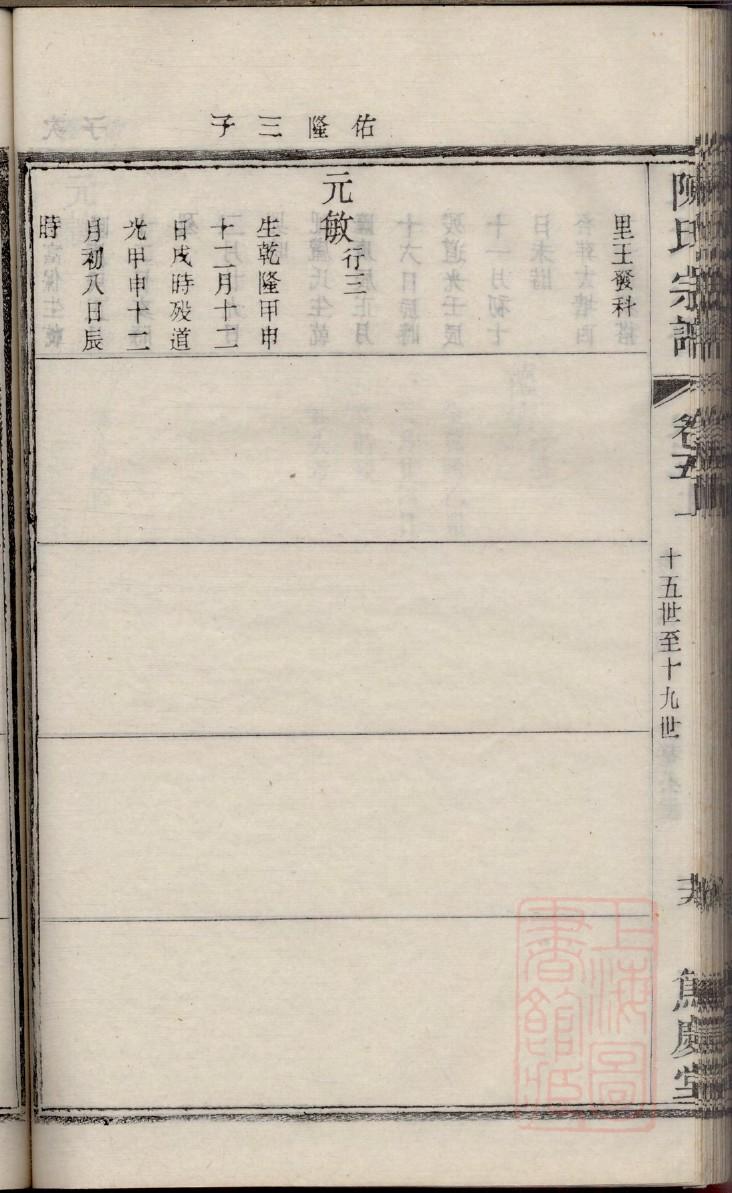 佑隆三子
里王發科
元敏行三
生乾隆甲申
十二月十二
日戌時殁道
光甲申十二
月初八日辰
時
陳氏宗譜
卷五
十五世至十九世
慶堂
上海圖
書館藏